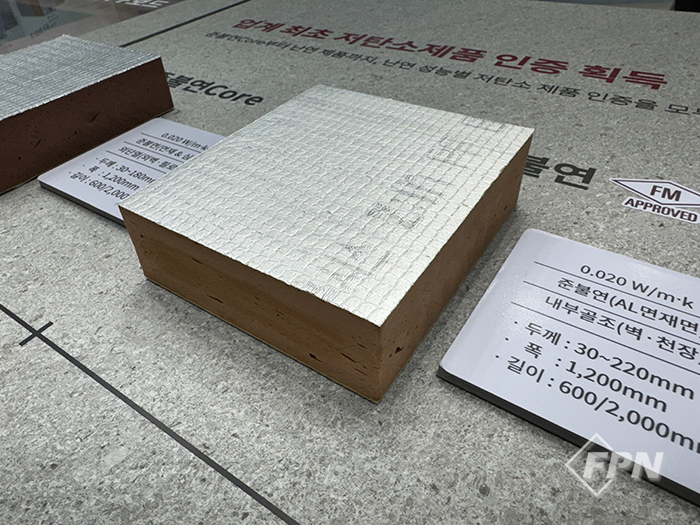 업계 최초 저탄소제품 인증 획득
준불연Core부터 난연 제품까지, 난연 성능별 저탄소 제품 인증을 모
준불연Core
0.020 W/m·k
준불연(면재 & 심
· 두께 : 30~180m
· 폭 : 1,200mm
· 길이 : 600/2,000
불연
FM
APPROVED
0.020 W/m·k
준불연(AL면재면
내부골조(벽·천장
· 두께 : 30~220mm
· 폭 : 1,200mm
· 길이 : 600/2,000mm
FPN